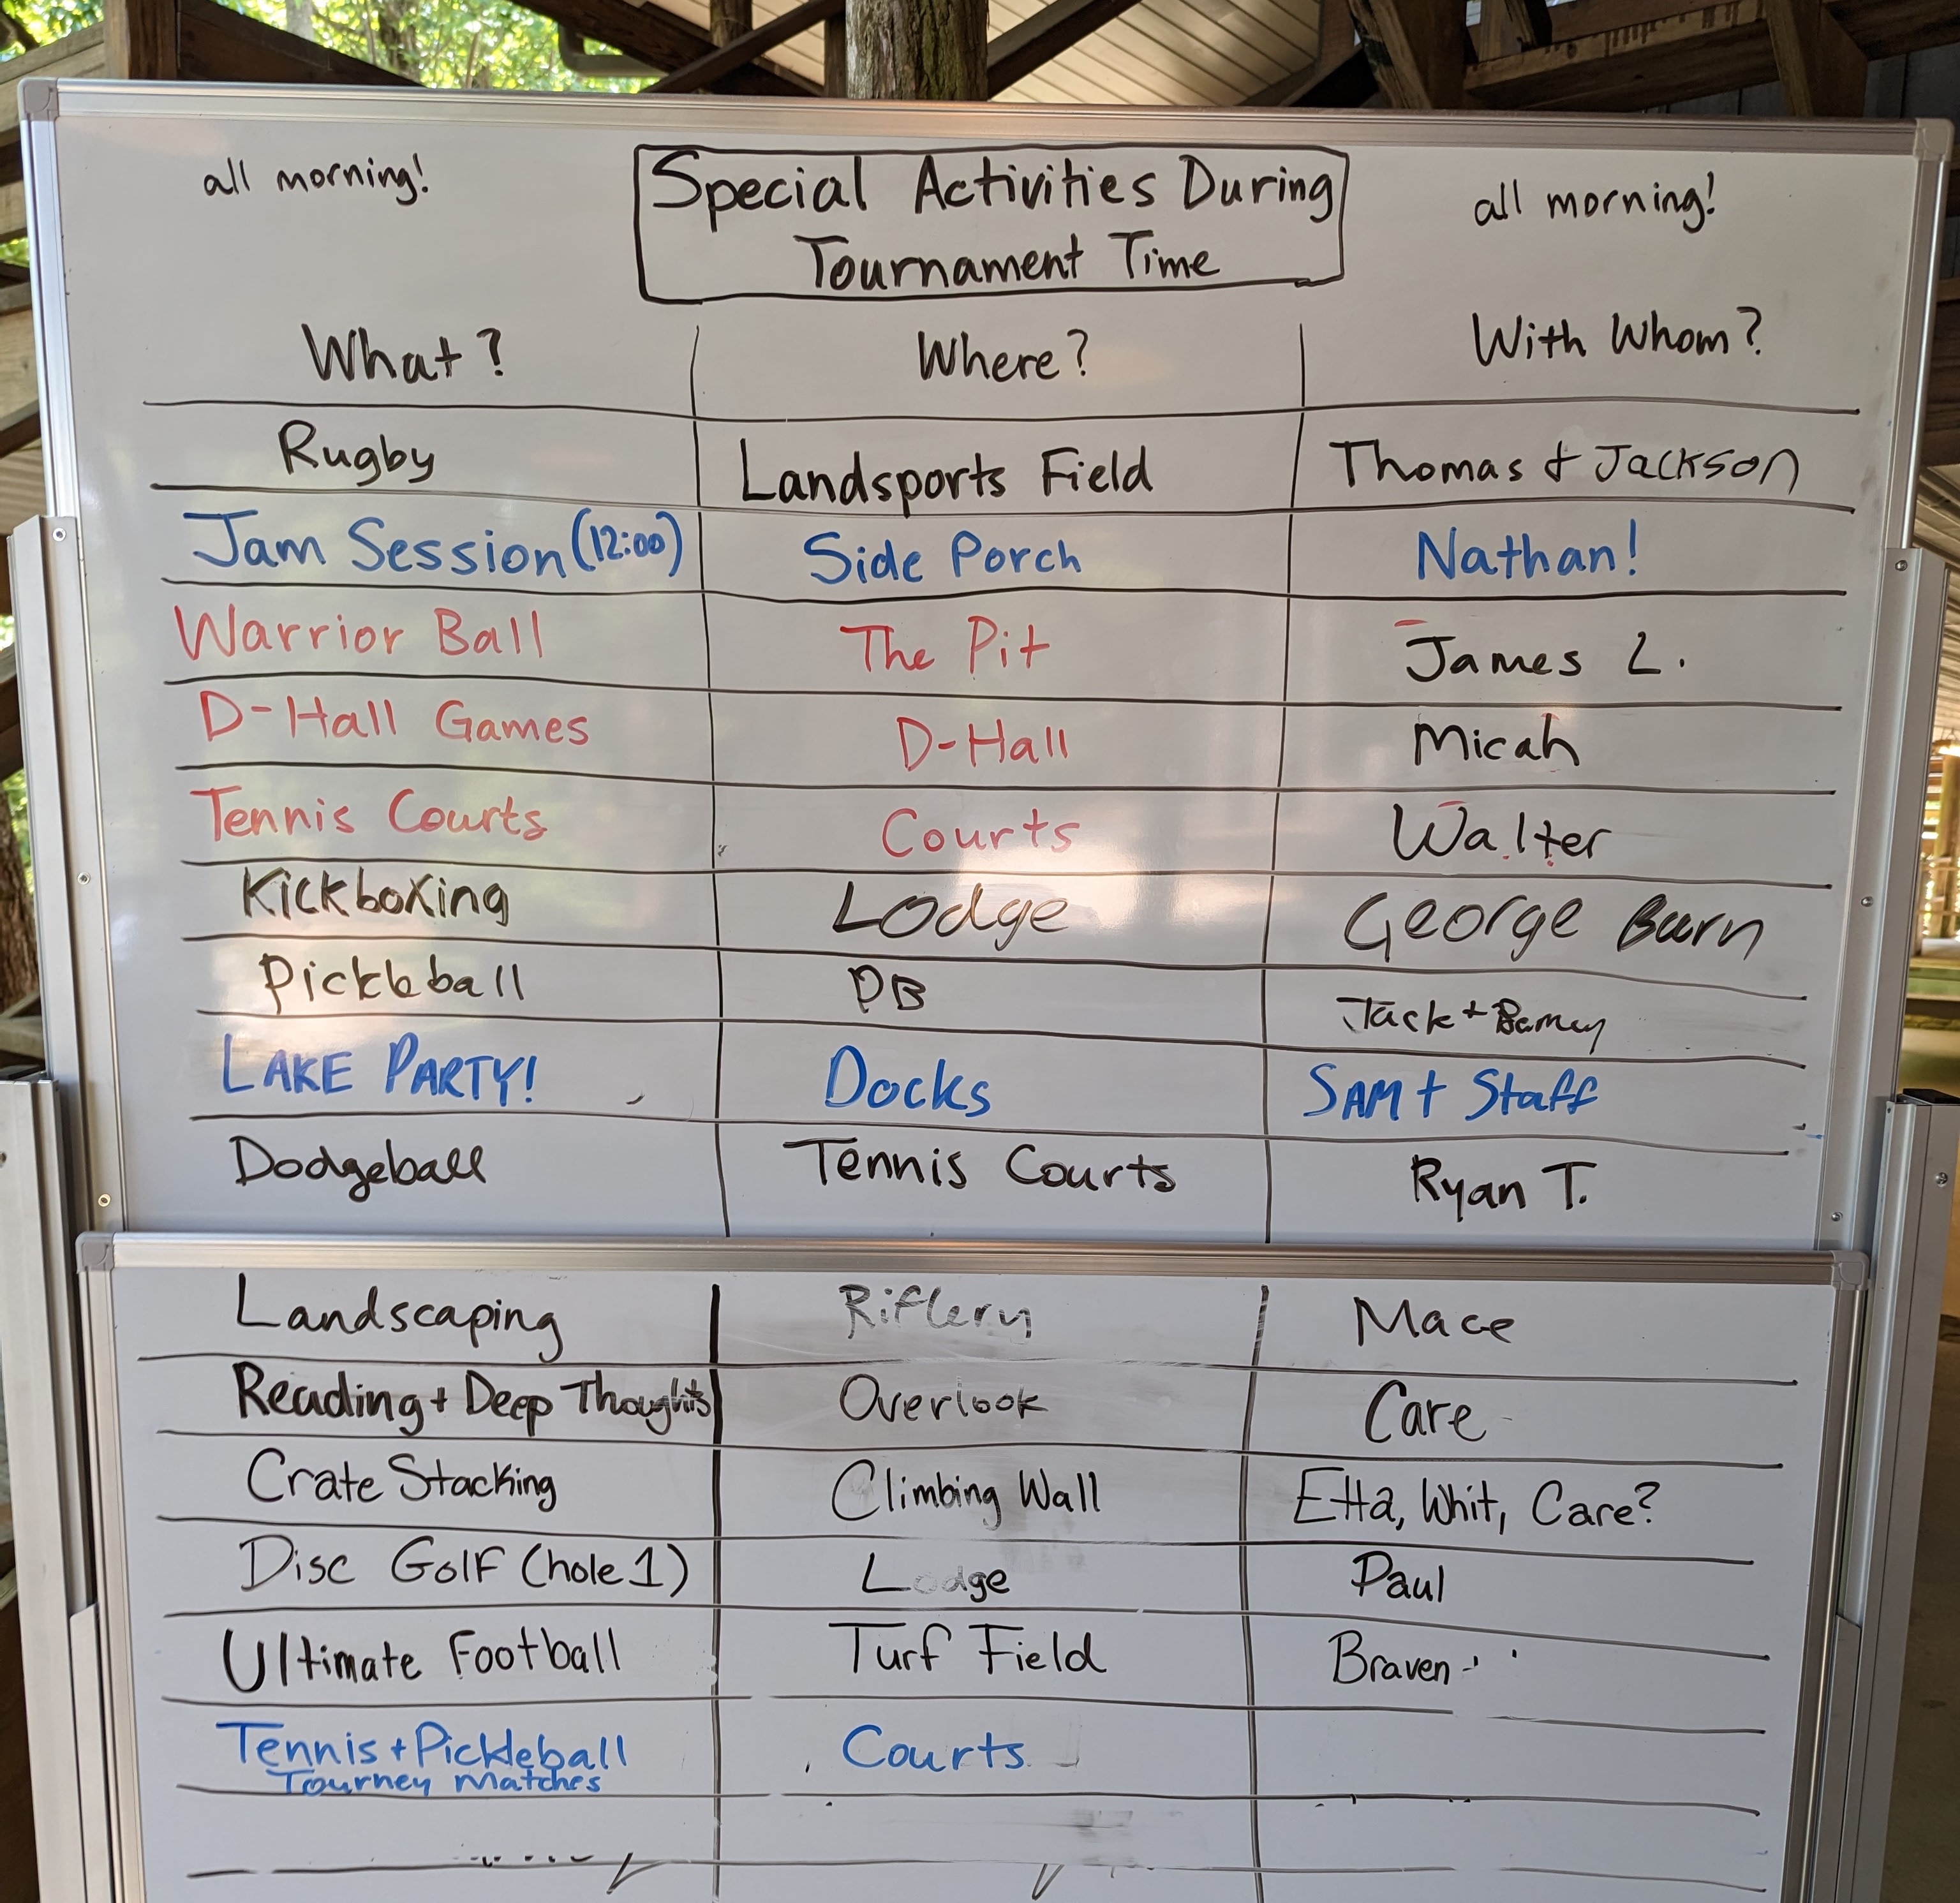 all morning! Special Activities During all morning!
Tournament Time
What? Where? With Whom?
Rugby Landsports Field Thomas + Jackson
Jam Session (12:00) Side Porch Nathan!
Warrior Ball The Pit James L.
D-Hall Games D-Hall Micah
Tennis Courts Courts Walter
Kickboxing Lodge George Barn
Pickleball PB Jack + Barney
LAKE PARTY! Docks SAM + Staff
Dodgeball Tennis Courts Ryan T.
Landscaping Riflery Mace
Reading + Deep Thoughts Overlook Care
Crate Stacking Climbing Wall Etta, Whit, Care?
Disc Golf (hole 1) Lodge Paul
Ultimate Football Turf Field Braven
Tennis + Pickleball Courts
Tourney Matches